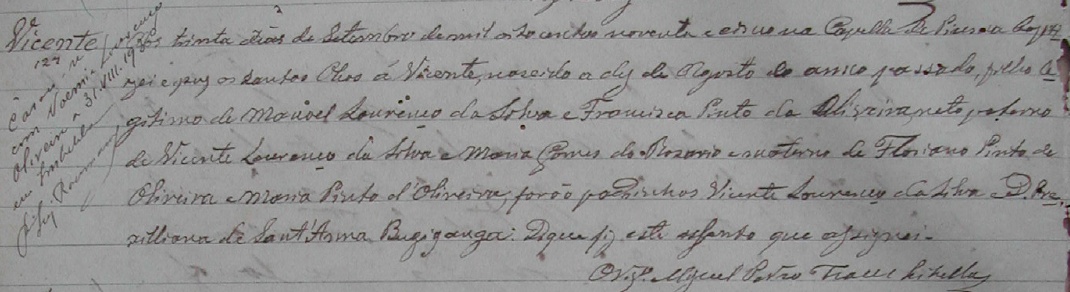 Vicente
Aos trinta dias de Setembro de mil oito centos noventa e cinco na Capella de Piuma bapti
zei e puz os santos Oleos á Vicente, nascido a dez de Agosto do anno passado, filho le
gitimo de Manoel Lourenço da Silva e Francisca Pinto de Oliveira neto paterno
de Vicente Lourenço da Silva e Maria Gomes do Rosario e materno de Floriano Pinto de
Oliveira e Maria Pinto d'Oliveira, forão padrinhos Vicente Lourenço da Silva e D. Bra
zilliana de Sant'Anna Bugiganga. Do que fiz este assento que assignei.
O Vigº. Miguel Pedro
Casou-se
com Noemia Lourenço
Oliveira a 31.VIII.1926
em